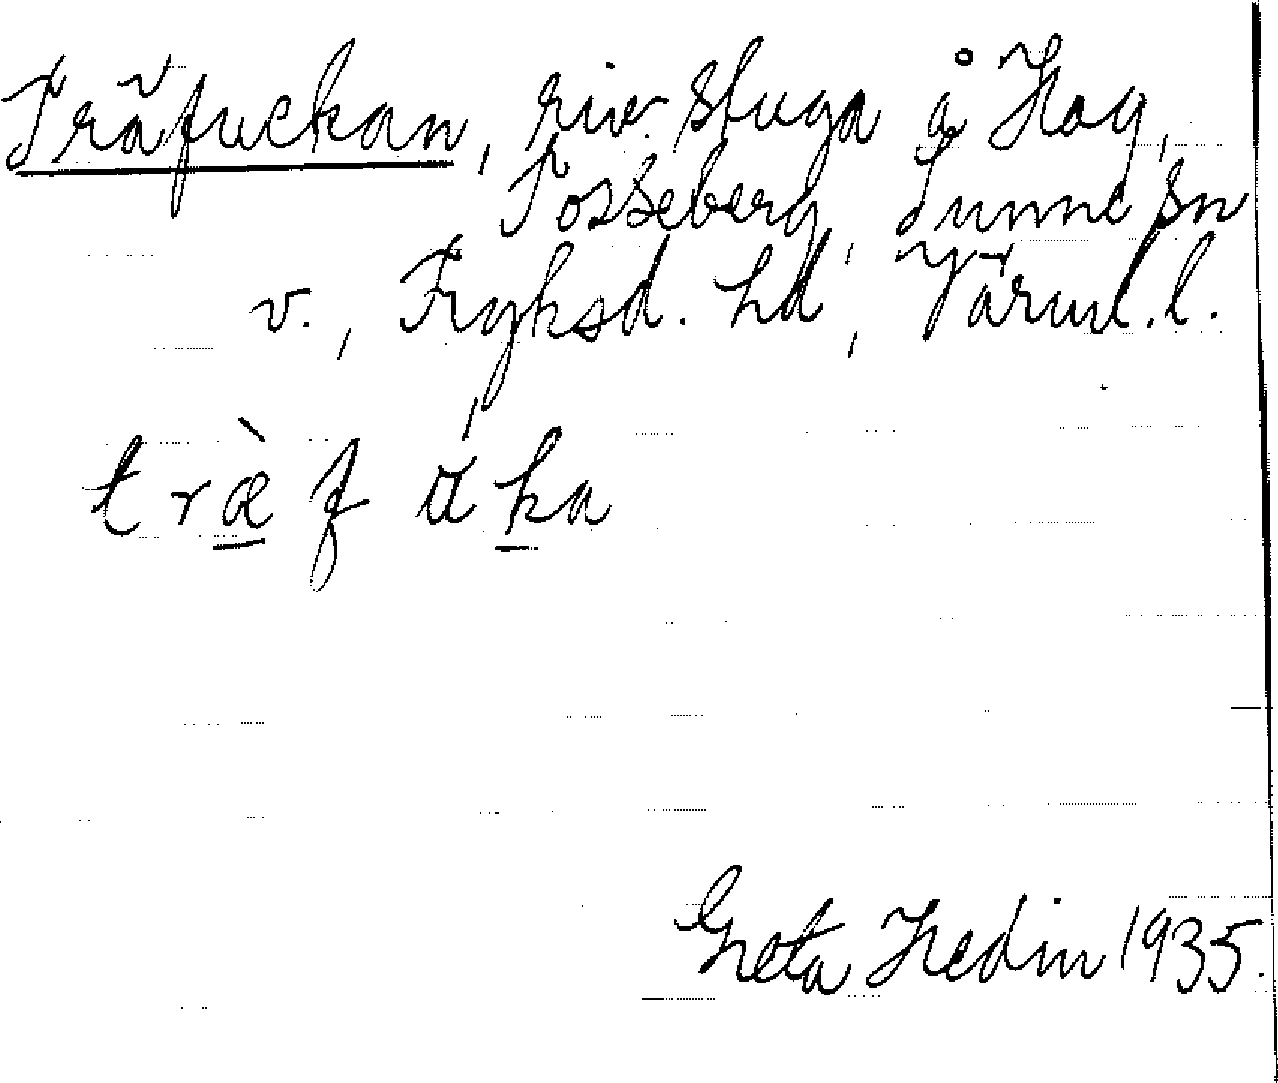 Träfuckan, riv. stuga å Hag,
Posseberg, Sunne sn
v., Fryksd. hd, Värml. l.
træ̀fuka
Greta Hedin 1935.